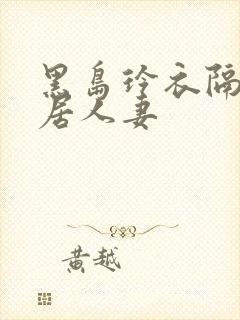 黑岛玲衣隔
居人妻
黄越